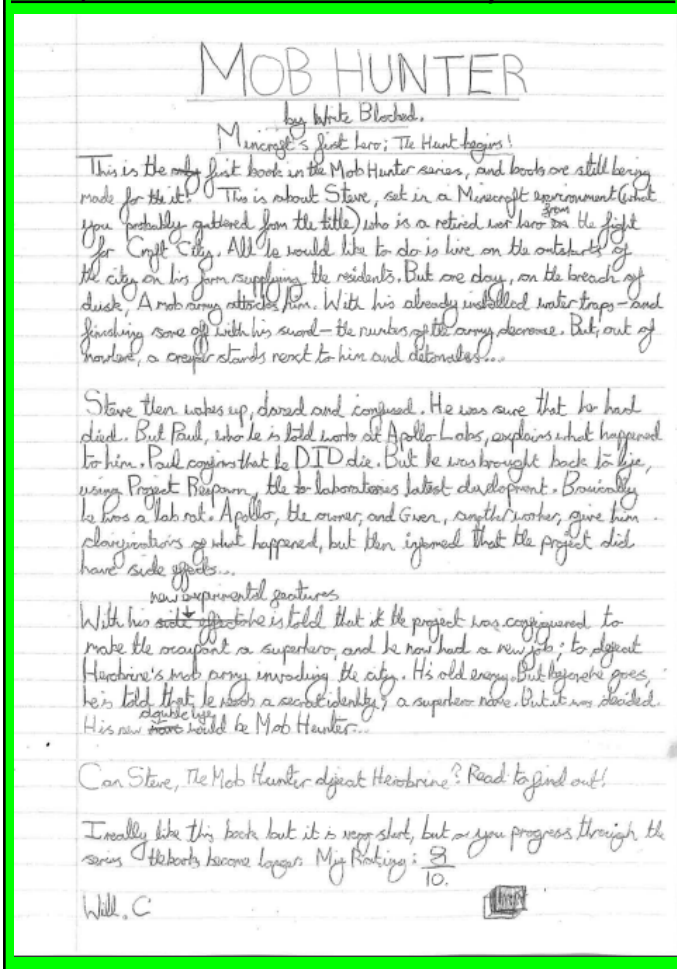 MOB HUNTER
by Write Blocked.
Mincraft's first hero; The Hunt begins!
This is the only first book in the Mob Hunter series, and books are still being
made for the it! This is about Steve, set in a Minecraft environment (what
you probably gattered from the title) who is a retired war hero from the fight
for Craft City. All he would like to do is live on the outskirts of
the city on his farm supplying the residents. But one day, on the breach of
dusk, A mob army attacks him. With his already installed water traps - and
finishing some off with his sword - the numbers of the army decrease. But, out of
nowhere, a creeper stands next to him and detonates...
Steve then wakes up, dazed and confused. He was sure that he had
died. But Paul, who he is told works at Apollo Labs, explains what happened
to him. Paul confirms that he DID die. But he was brought back to life,
using Project Respawn, the laboratories latest development. Basically
he was a lab rat. Apollo, the owner, and Gwen, another worker, give him
clarifications of what happened, but then informed that the project did
have side effects...
new experimental features
With his side effects he is told that the project was configuered to
make the occupant a superhero, and he now had a new job: to defeat
Herobrine's mob army invading the city. His old enemy. But before he goes,
he is told that he needs a secret identity; a superhero name. But it was decided.
double life
His new would be Mob Hunter...
Can Steve, The Mob Hunter defeat Herobrine? Read to find out!
I really like this book but it is very short, but as you progress through the
series the books become longer. My Rating: 8
10.
Will. C